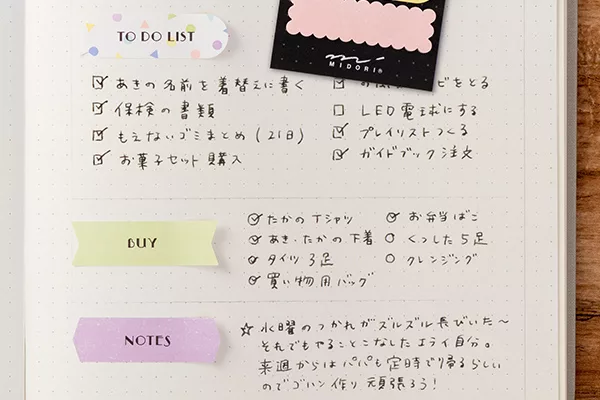 TO DO LIST
MIDORI®
あきの名前を着替えに書く
ビをとる
保検の書類
LED電球にする
もえないゴミまとめ(21日)
プレイリストつくる
お菓子セット購入
ガイドブック注文
BUY
たかのTシャツ
お弁当ばこ
あき・たかの下着
くつした5足
タイツ3足
クレンジング
買い物用バッグ
NOTES
☆水曜のつかれがズルズル長びいた〜
それでもやることこなしたエライ自分。
来週からはパパも定時で帰るらしい
のでゴハン作り頑張ろう!